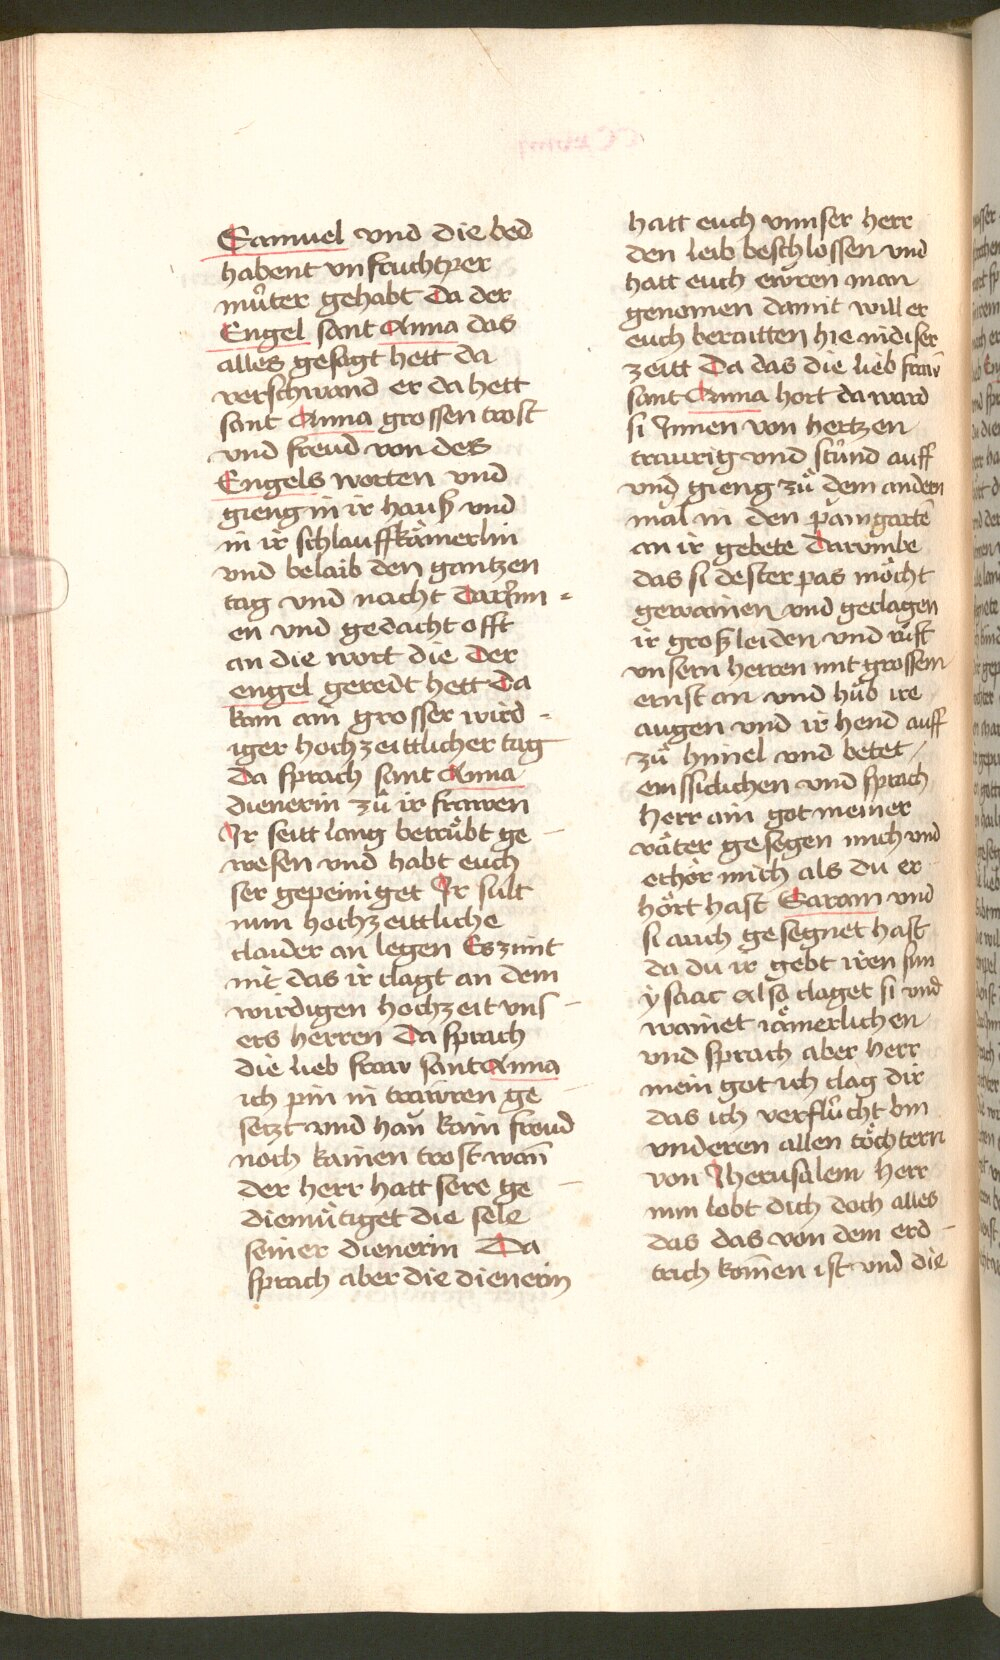 Samuel vnd die bed
habent vnfruchtper
můter gehabt Da der
Engel sant Anna das
alles gesagt hett da
verschwand er da hett
sant Anna grossen trost
vnd freud von des
Engels worten vnd
gieng in ir hauß vnd
in ir schlauffkämerlin
vnd belaib den gantzen
tag vnd nacht Darjnn=
en vnd gedacht offt
an die wort die Der
engel geredt hett Da
kam ain grosser wird-
iger hochzeittlicher tag
Da sprach sant Anna
dienerin zů ir frawen
Ir seitt lang betrübt ge-
wesen vnd habt euch
ser gepeiniget Ir sult
nun hochzeittliche
claider an legen Es zimt
nit das ir clagt an dem
wirdigen hochzeit vns-
ers herren Da sprach
die lieb fraw sant Anna
ich pin in trawren ge
setzt vnd han kain freud
noch kainen trost wañ
der herr hatt sere ge-
diemütiget die sele
seiner dienerin Da
sprach aber die dienerin
hatt euch vnnser herr
den leib beschlossen vnd
hatt euch ewren man
genomen damit will er
euch beraitten hie in diser
zeitt Da das die lieb fraw
sant Anna hort da ward
si Innen von hertzen
traurig vnd stůnd auff
vnd gieng zů dem andern
mal in den pamgartē
an ir gebete Darumbe
das si dester pas möcht
gewainen vnd geclagen
ir groß leiden vnd růft
vnsern herren mit grossem
ernst an vnd hůb ire
augen vnd ir hend auff
zů himel vnd betet
emssiclichen vnd sprach
herr ain got meiner
väter gesegen mich vnd
erhör mich als du er
hört hast Saram vnd
si auch gesegnet hast
da du ir gebt iren sun
ysaac also claget si vnd
wainet iämerlichen
vnd sprach aber herr
mein got ich clag dir
das ich verflůcht bin
vnderen allen töchtern
von Jherusalem herr
nun lobt dich doch alles
das das von dem erd-
trich komen ist vnd die